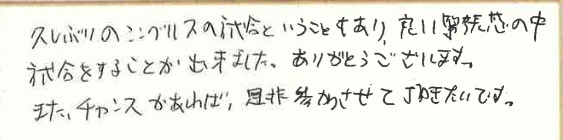 久しぶりのシングルスの試合ということもあり、良い緊張感の中
試合をすることが出来ました。ありがとうございます。
また、チャンスがあれば、是非参加させて頂きたいです。